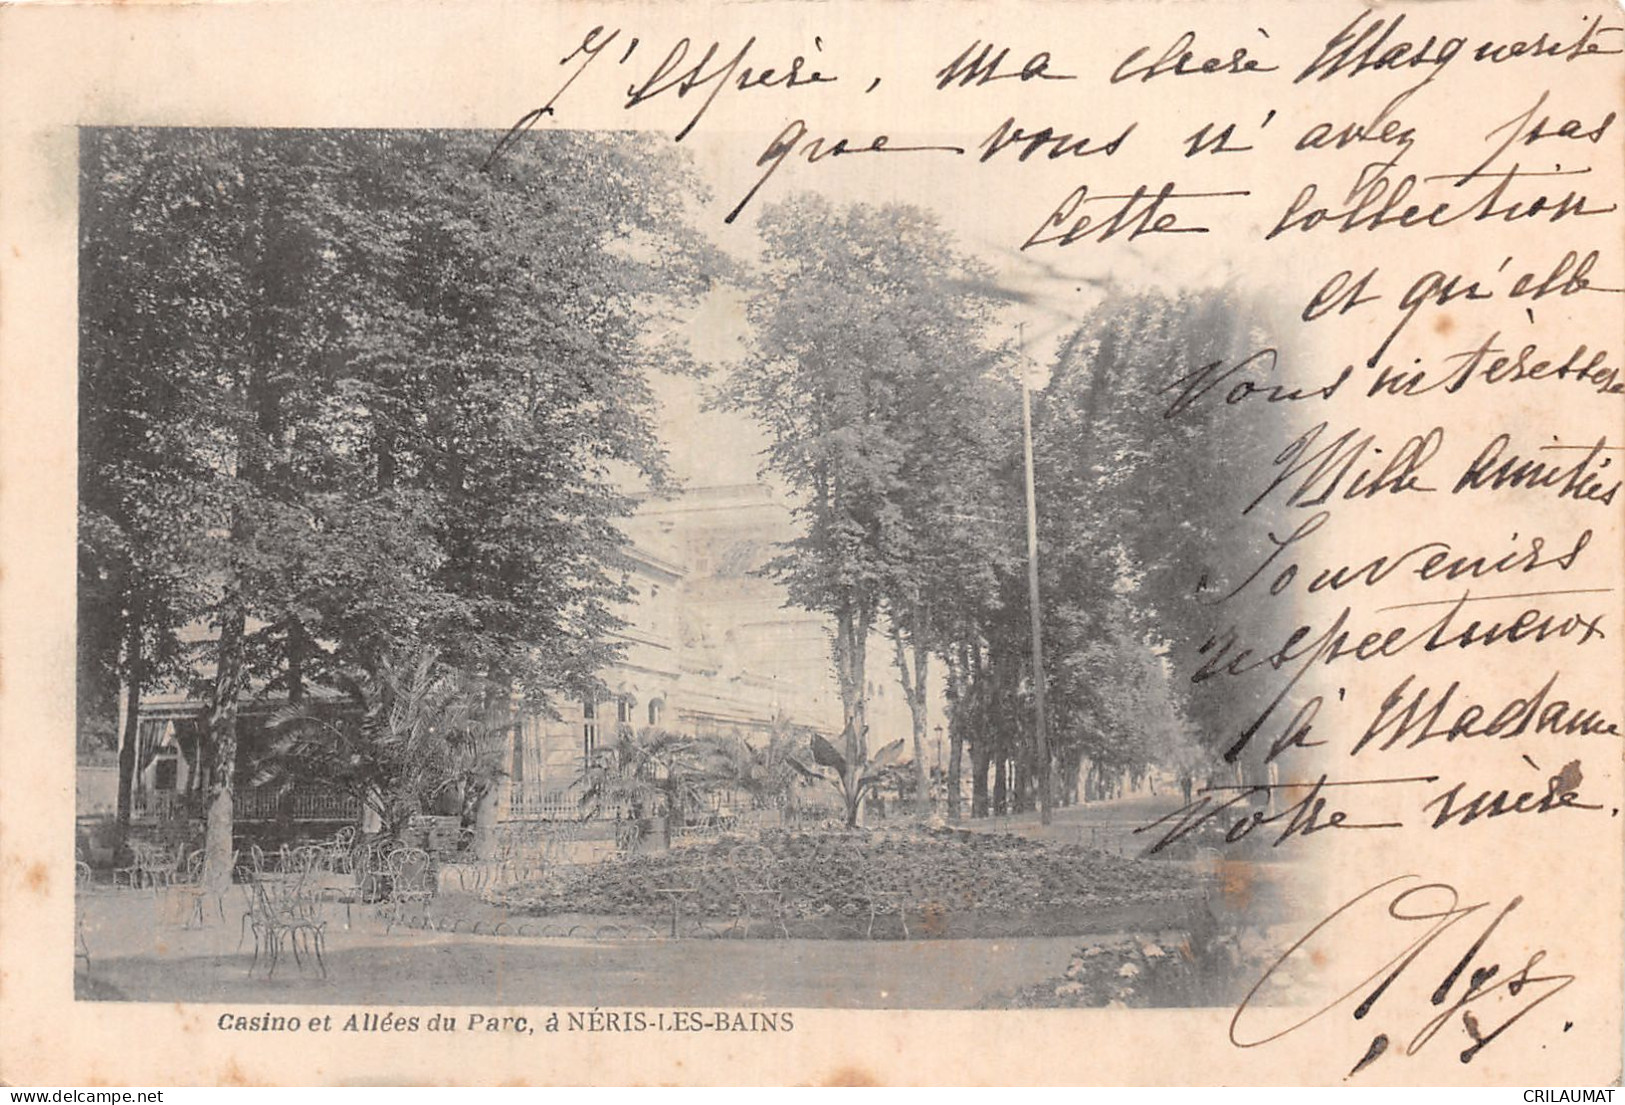 J'espère, ma chère Marguerite
que vous n'avez pas
cette collection
et qu'elle
vous intéressera
Mille amitiés
Souvenirs
respectueux
à Madame
Votre mère.
Alys
Casino et Allées du Parc, à NÉRIS-LES-BAINS
delcampe.net
CRILAUMAT